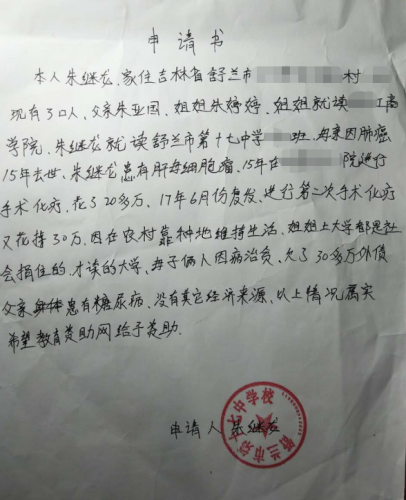 申请书
本人朱继龙、家住吉林省舒兰市 村
现有了口人,父亲朱亚国、姐姐朱婷婷、姐姐就读 工商
学院、朱继龙就读舒兰市第十七中学 班、母亲因肺癌
15年去世、朱继龙患有肝母细胞瘤、15年在 院进行
手术化疗、花了20多万、17年6月份复发、进行第二次手术化疗
又花掉30万、因在农村靠种地维持生活、姐姐上大学都是社
会捐住的、才读的大学、母子俩人因病治负、欠了30多万外债
父亲 患有糖尿病、没有其它经济来源、以上情况属实
希望教育资助网给予资助.
申请人 朱继龙
舒兰市第十七中学校